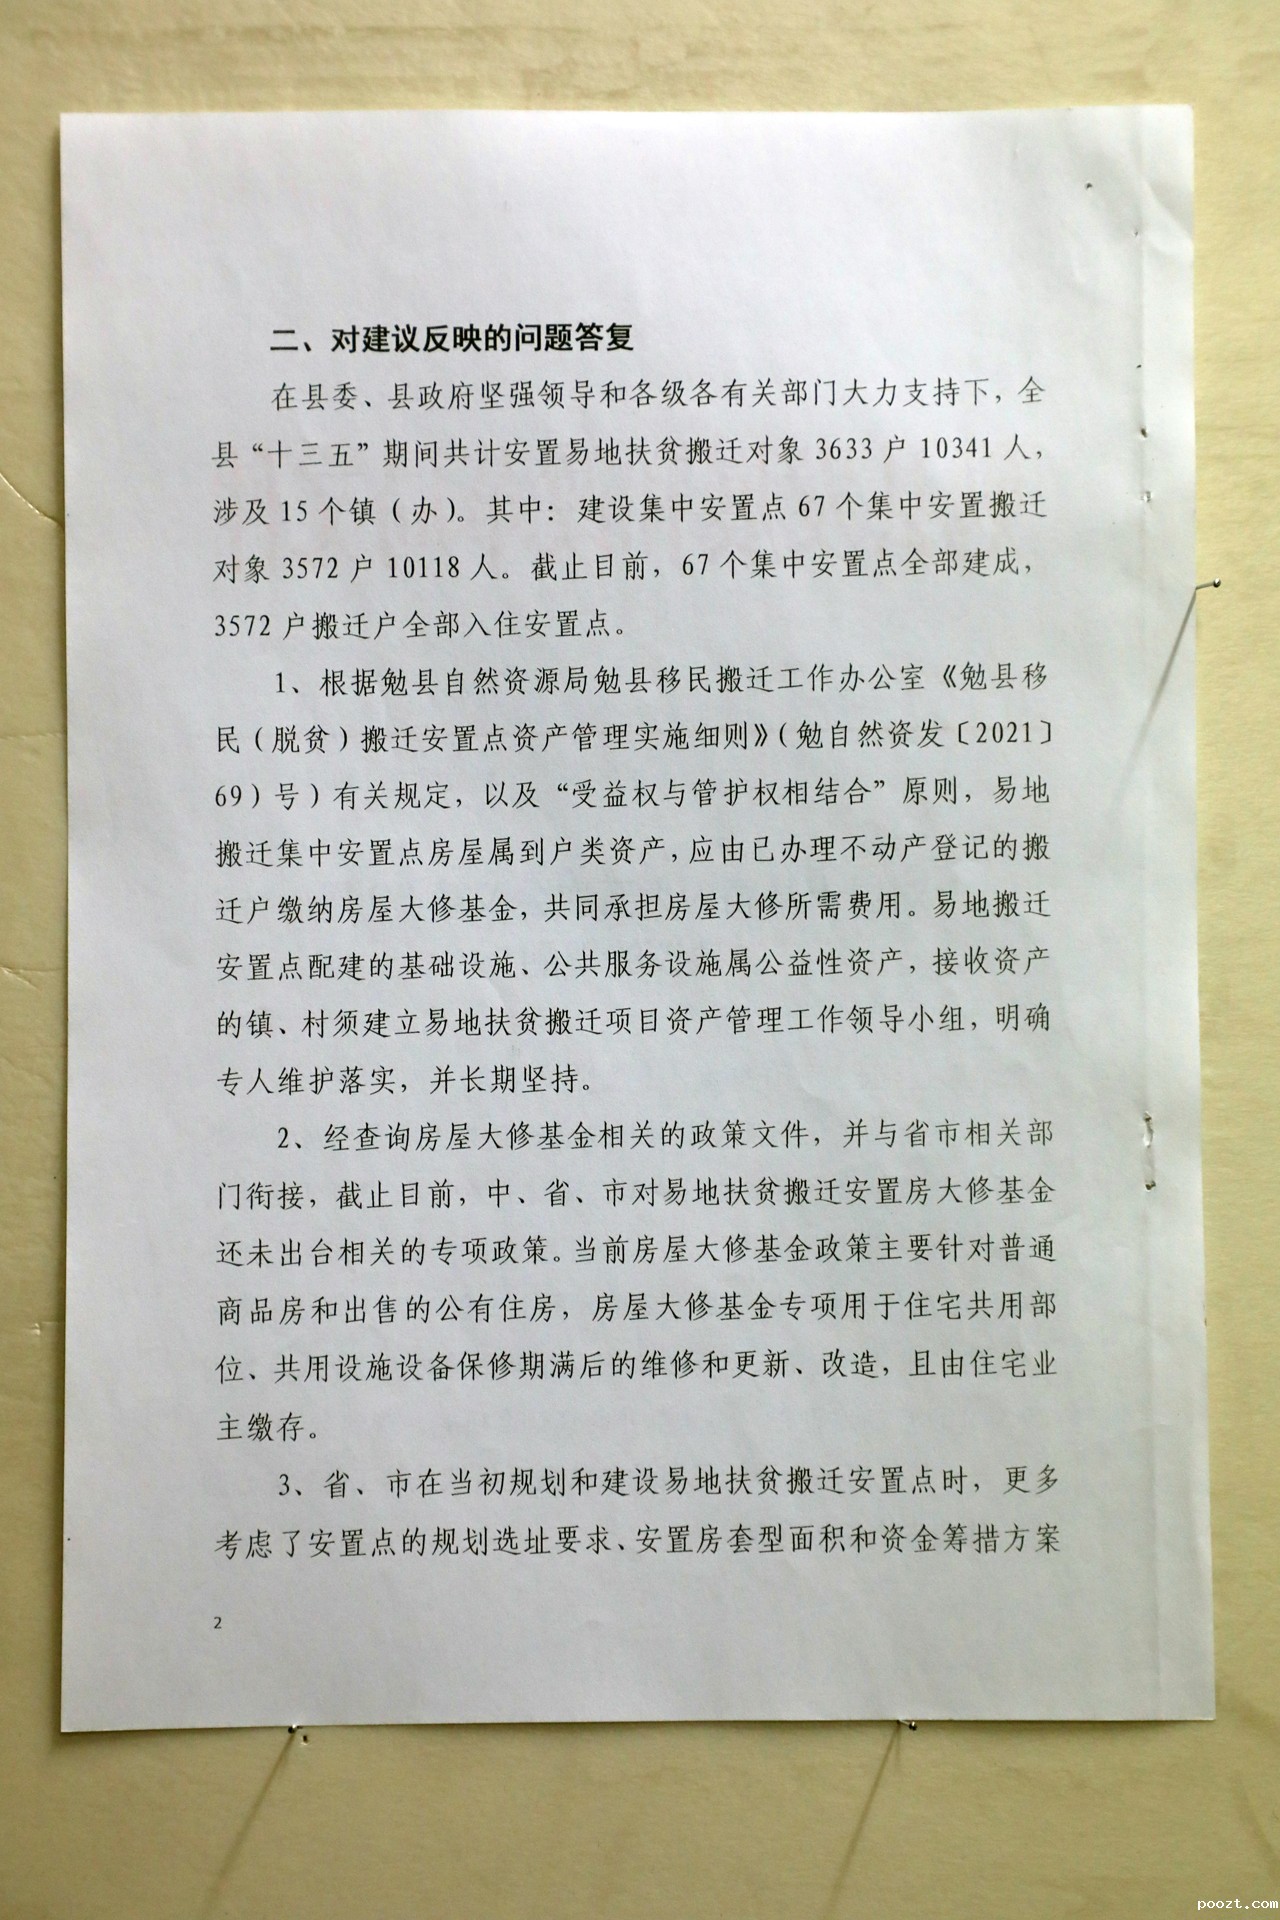 二、对建议反映的问题答复
在县委、县政府坚强领导和各级各有关部门大力支持下，全
县“十三五”期间共计安置易地扶贫搬迁对象 3633 户 10341 人，
涉及 15 个镇（办）。其中：建设集中安置点 67 个集中安置搬迁
对象 3572 户 10118 人。截止目前，67 个集中安置点全部建成，
3572 户搬迁户全部入住安置点。
1、根据勉县自然资源局勉县移民搬迁工作办公室《勉县移
民（脱贫）搬迁安置点资产管理实施细则》（勉自然资发〔2021〕
69）号）有关规定，以及“受益权与管护权相结合”原则，易地
搬迁集中安置点房屋属到户类资产，应由已办理不动产登记的搬
迁户缴纳房屋大修基金，共同承担房屋大修所需费用。易地搬迁
安置点配建的基础设施、公共服务设施属公益性资产，接收资产
的镇、村须建立易地扶贫搬迁项目资产管理工作领导小组，明确
专人维护落实，并长期坚持。
2、经查询房屋大修基金相关的政策文件，并与省市相关部
门衔接，截止目前，中、省、市对易地扶贫搬迁安置房大修基金
还未出台相关的专项政策。当前房屋大修基金政策主要针对普通
商品房和出售的公有住房，房屋大修基金专项用于住宅共用部
位、共用设施设备保修期满后的维修和更新、改造，且由住宅业
主缴存。
3、省、市在当初规划和建设易地扶贫搬迁安置点时，更多
考虑了安置点的规划选址要求、安置房套型面积和资金筹措方案
2
poozt.com